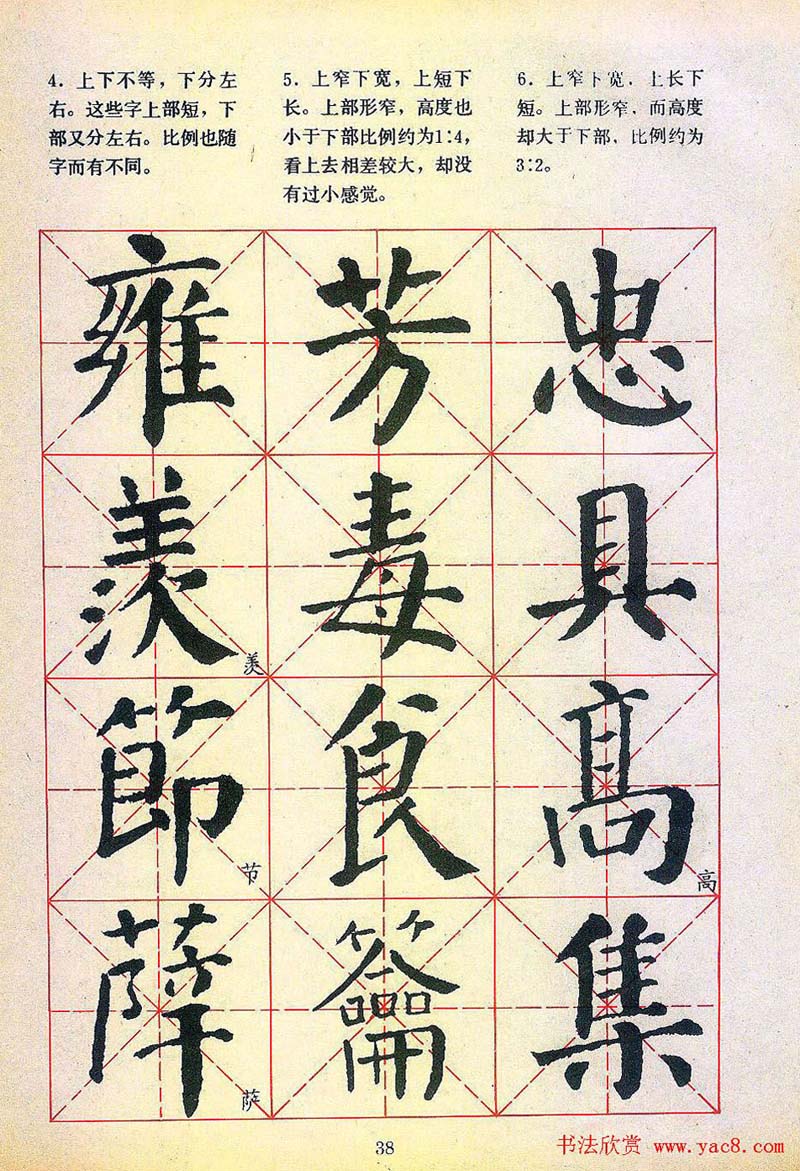 4. 上下不等，下分左
右。这些字上部短，下
部又分左右。比例也随
字而有不同。
5. 上窄下宽，上短下
长。上部形窄，高度也
小于下部比例约为1:4，
看上去相差较大，却没
有过小感觉。
6. 上窄下宽，上长下
短。上部形窄，而高度
却大于下部，比例约为
3:2。
雍 芳 忠
羡 毒 具
羡
節 食 髙
节 高
薩 籥 集
萨
38
书法欣赏 www.yac8.com